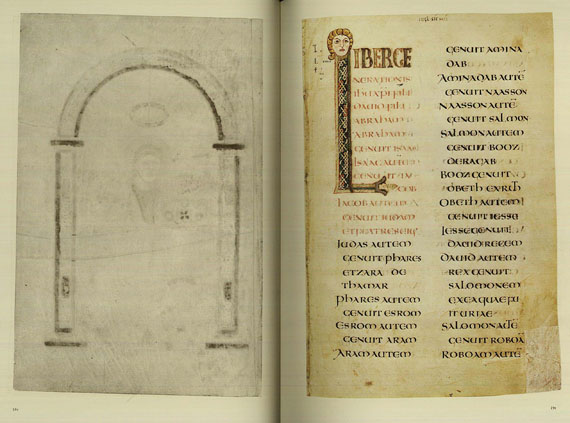 LIBER GE
NERATIONIS
IHU XPI FILII
DAVID FILII
ABRAHAM
ABRAHAM
GENUIT ISAAC
ISAAC AUTEM
GENUIT IA
COB
IACOB AUTEM
GENUIT IUDAM
ET FRATRES EIUS
JUDAS AUTEM
GENUIT PHARES
ET ZARA DE
THAMAR
PHARES AUTEM
GENUIT ESROM
ESROM AUTEM
GENUIT ARAM
ARAM AUTEM
GENUIT AMINA
DAB
AMINADAB AUTĒ
GENUIT NAASSON
NAASSON AUTĒ
GENUIT SALMON
SALMON AUTEM
GENUIT BOOZ
DE RACAB
BOOZ GENUIT
OBETH EX RUTH
OBETH AUTEM
GENUIT IESSE
IESSE GENUIT
DAVID REGEM
DAVID AUTEM
REX GENUIT
SALOMONEM
EX EA QUAE FU
IT URIAE
SALOMON AUTĒ
GENUIT ROBOĀ
ROBOAM AUTĒ